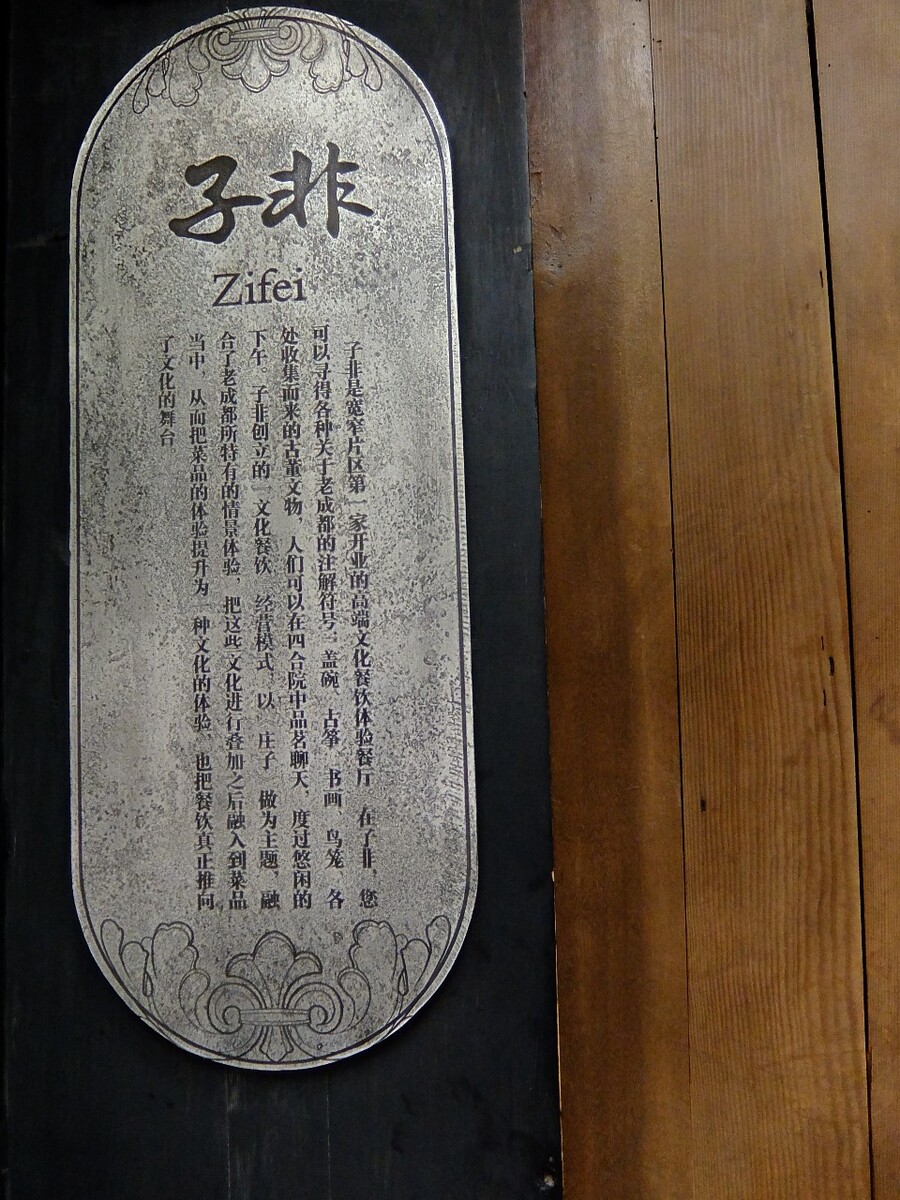 子非
Zifei
子非是宽窄片区第一家开业的高端文化餐饮体验餐厅 在子非，您
可以寻得各种关于老成都的注解符号：盖碗、古筝、书画、鸟笼、各
处收集而来的古董文物，人们可以在四合院中品茗聊天，度过悠闲的
下午。子非创立的“文化餐饮”经营模式，以“庄子”做为主题，融
合了老成都所特有的情景体验，把这些文化进行叠加之后融入到菜品
当中，从而把菜品的体验提升为一种文化的体验，也把餐饮真正推向
了文化的舞台